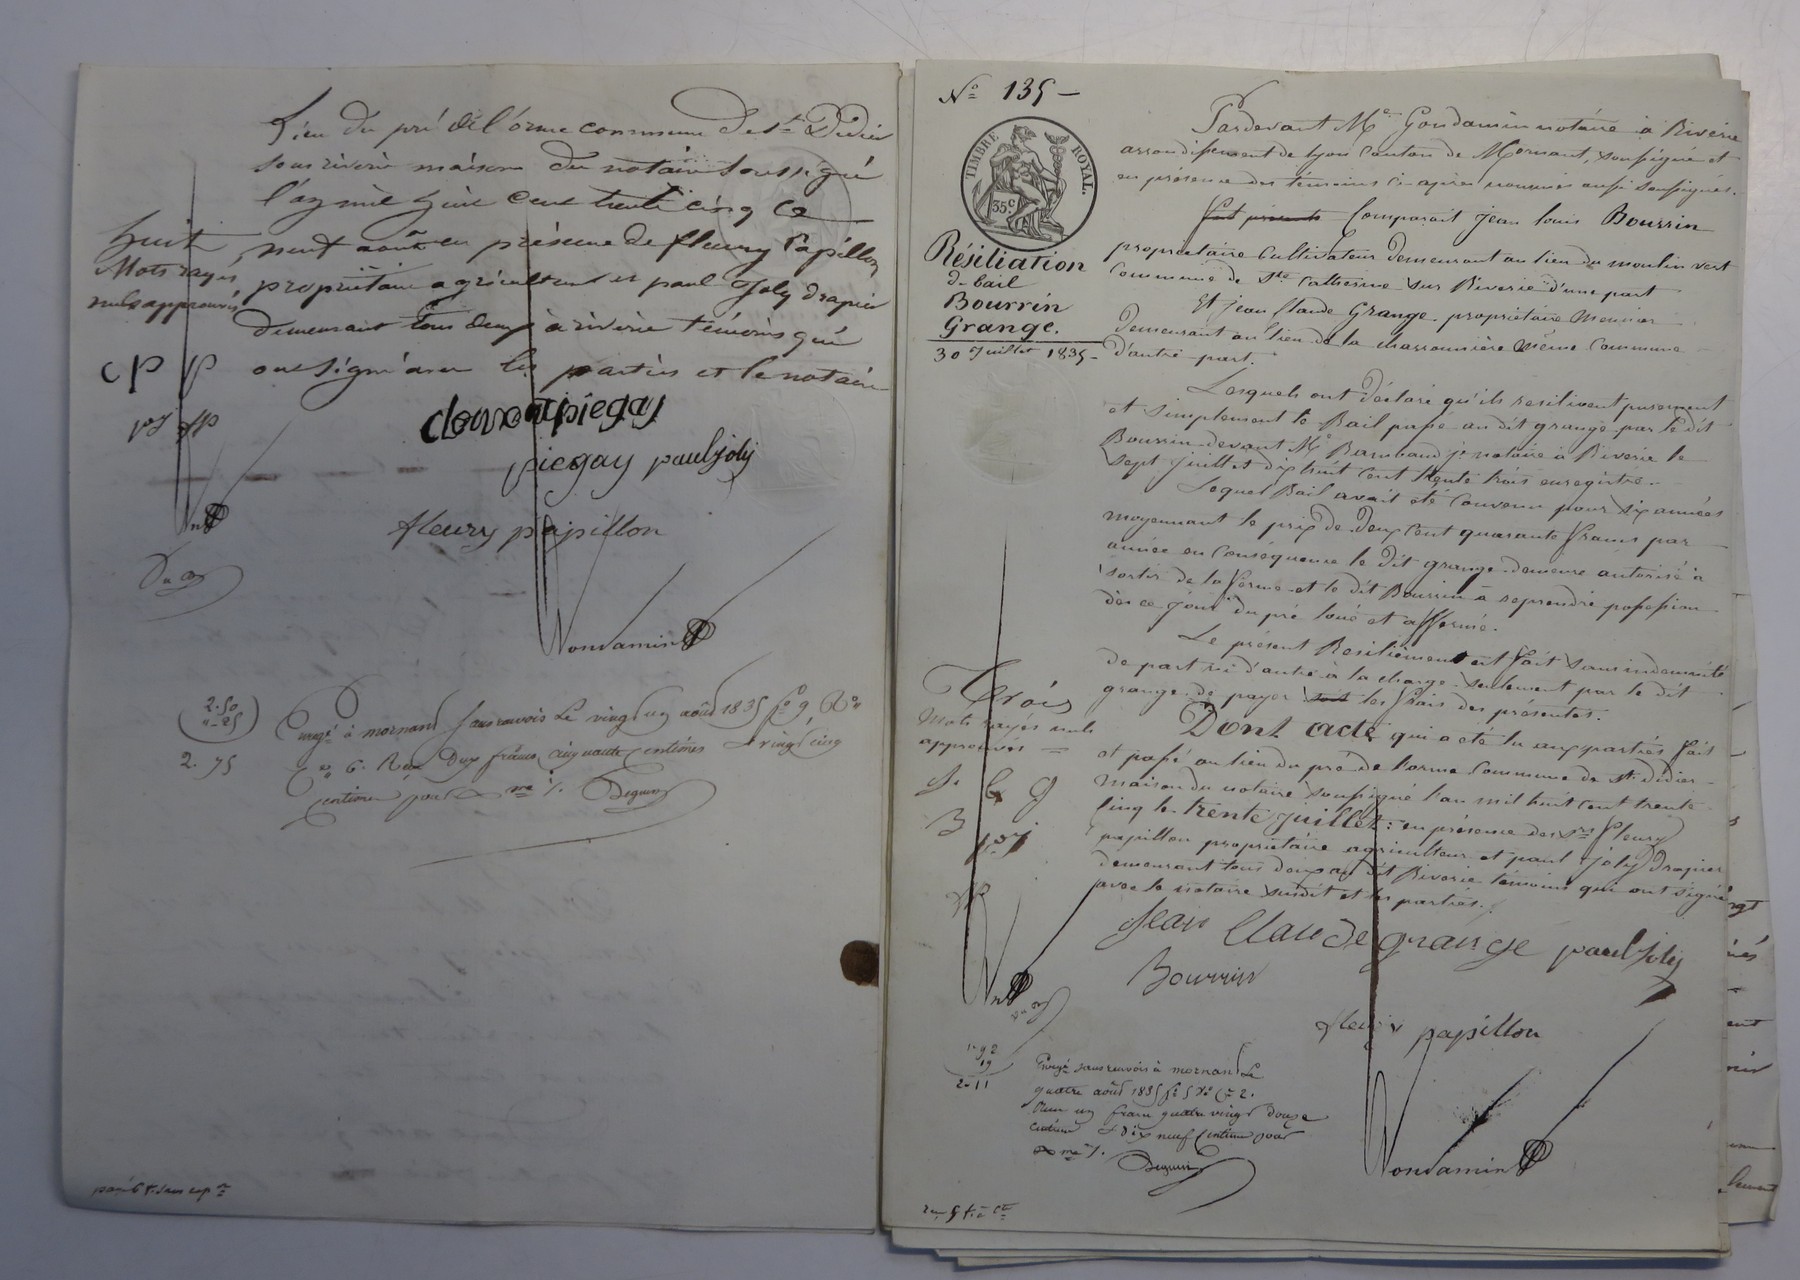 Lieu du pré de l'orme commune de St Didier
sous riverie maison du notaire soussigné
l'an mil huit cent trente cinq le
neuf août en présence de fleury Papillon
propriétaire agriculteur et paul Joly drapier
demeurant tous deux à riverie témoins qui
ont signé avec les parties et le notaire
huit
Mots rayés
nuls approuvés
cP P
clemençon piegay
piegay paul joly
fleury papillon
Gondamin
2.50
"-25
2.75
Enregé à mornand sans renvois le vingt un août 1835 fo 9 Ro
Cse 6. Reçu deux francs cinquante centimes et vingt cinq
centimes pour Xme %. Deguin
Nº 135-
TIMBRE ROYAL.
35.c
Résiliation
de bail
Bourrin
Grange.
30 Juillet 1835-
Pardevant Me Gondamin notaire à Riverie
arrondissement de lyon canton de Mornant, soussigné et
en présence des témoins ci-après nommés aussi soussignés.
Comparait Jean louis Bourrin
propriétaire cultivateur demeurant au lieu du moulin vert
commune de Ste Catherine sur Riverie d'une part
Et jean Claude Grange propriétaire Meunier
demeurant au lieu de la chassonnière même commune
d'autre part.
Lesquels ont déclaré qu'ils resilient purement
et simplement le Bail passé au dit grange par le dit
Bourrin devant Me Bambaud je notaire à Riverie le
sept juillet dix huit cent trente trois enregistré.
Lequel Bail avait été convenu pour six années
moyennant le prix de deux cent quarante francs par
année en conséquence le dit grange demeure autorisé à
sortir de la ferme et le dit Bourrin à reprendre possession
dès ce jour du pré loué et affermé.
Le présent Resiliement est fait sans indemnité
de part ni d'autre à la charge seulement par le dit
grange de payer les frais des présentes.
Dont acte qui a été lu aux parties fait
et passé au lieu du pré de l'orme commune de St Didier
maison du notaire soussigné l'an mil huit cent trente
cinq le trente juillet: en présence des srs fleury
papillon propriétaire agriculteur et paul joly drapier
demeurant tous deux au dit Riverie témoins qui ont signé
avec le notaire susdit et les parties.
Trois
Mots rayés nuls
approuvés
Jean Claude grange paul joly
Bourrin
fleury papillon
Gondamin
1.92
19
2.11
Enregé sans renvois à mornand le
quatre août 1835 fo 5 Vo Cse 2.
Reçu un franc quatre vingt douze
centimes et dix neuf centimes pour
Xme %.
Deguin